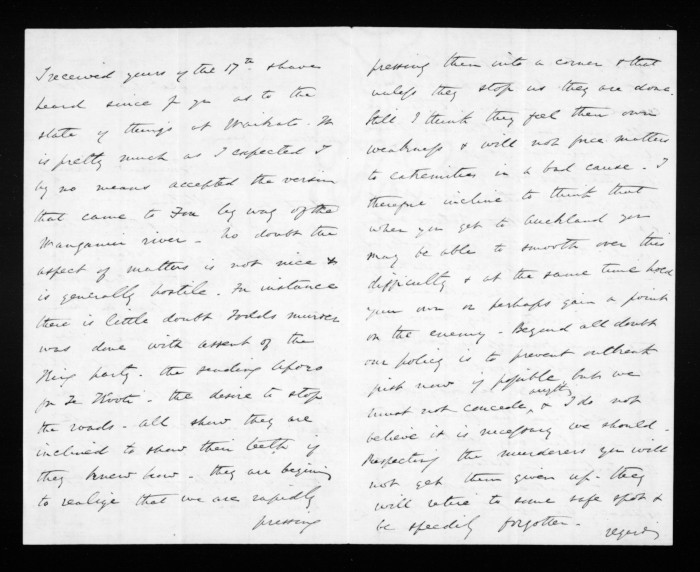 I received yours of the 17th & have
heard since fr you as to the
state of things at Waikato. It
is pretty much as I expected I
by no means accepted the version
that came to Fox by way of the
Wanganui river - No doubt the
aspect of matters is not nice &
is generally hostile. For instance
there is little doubt Todds murder
was done with assent of the
King party - the sending
for Te Kooti - the desire to stop
the roads - all show they are
inclined to show their teeth if
they knew how - they are begining
to realize that we are rapidly
pressing
pressing them into a corner & that
unless they stop us they are done.
Still I think they feel their own
weakness & will not force matters
to extremities in a bad cause - I
therefore incline to think that
when you get to Auckland you
may be able to smooth over this
difficulty & at the same time hold
your own or perhaps gain a point
on the enemy - Beyond all doubt
our policy is to prevent outbreak
just now if possible, but we
must not concede anything, & I do not
believe it is necessary we should -
Respecting the murderers you will
not get them given up - they
will retire to some safe spot &
be speedily forgotten -